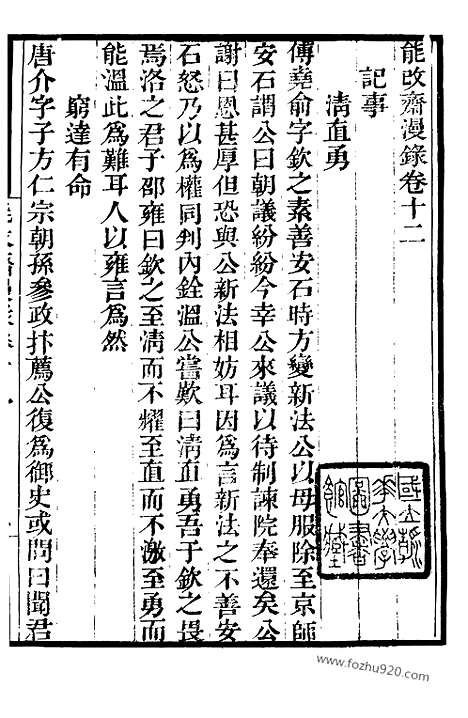 能改齋漫錄卷十二
記事
清直勇
傅堯俞字欽之素善安石時方變新法公以母服除至京師
安石謂公曰朝議紛紛今幸公來議以待制諫院奉還矣公
謝曰恩甚厚但恐與公新法相妨耳因爲言新法之不善安
石怒乃以爲權同判內銓溫公嘗歎曰清直勇吾于欽之畏
焉洛之君子邵雍曰欽之至清而不耀至直而不激至勇而
能溫此爲難耳人以雍言爲然
窮達有命
唐介字子方仁宗朝孫參政抃薦公復爲御史或問曰聞君
國立浙
江大學
圖書
館藏
www.fozhu920.com